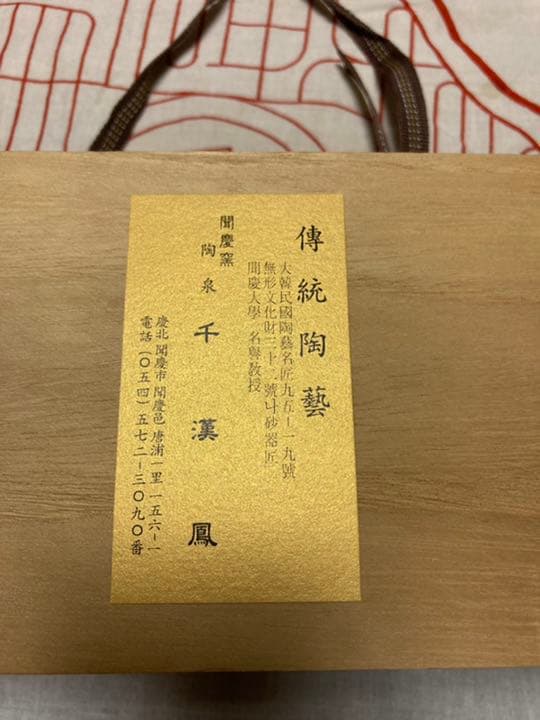 傳統陶藝
大韓民國陶藝名匠九五－一九號
無形文化財三十二號나砂器匠
聞慶大學 名譽教授
聞慶窯
陶泉 千漢鳳
慶北 聞慶市 聞慶邑 唐浦一里 一五六－一
電話 (〇五四) 五七二－三〇九〇番